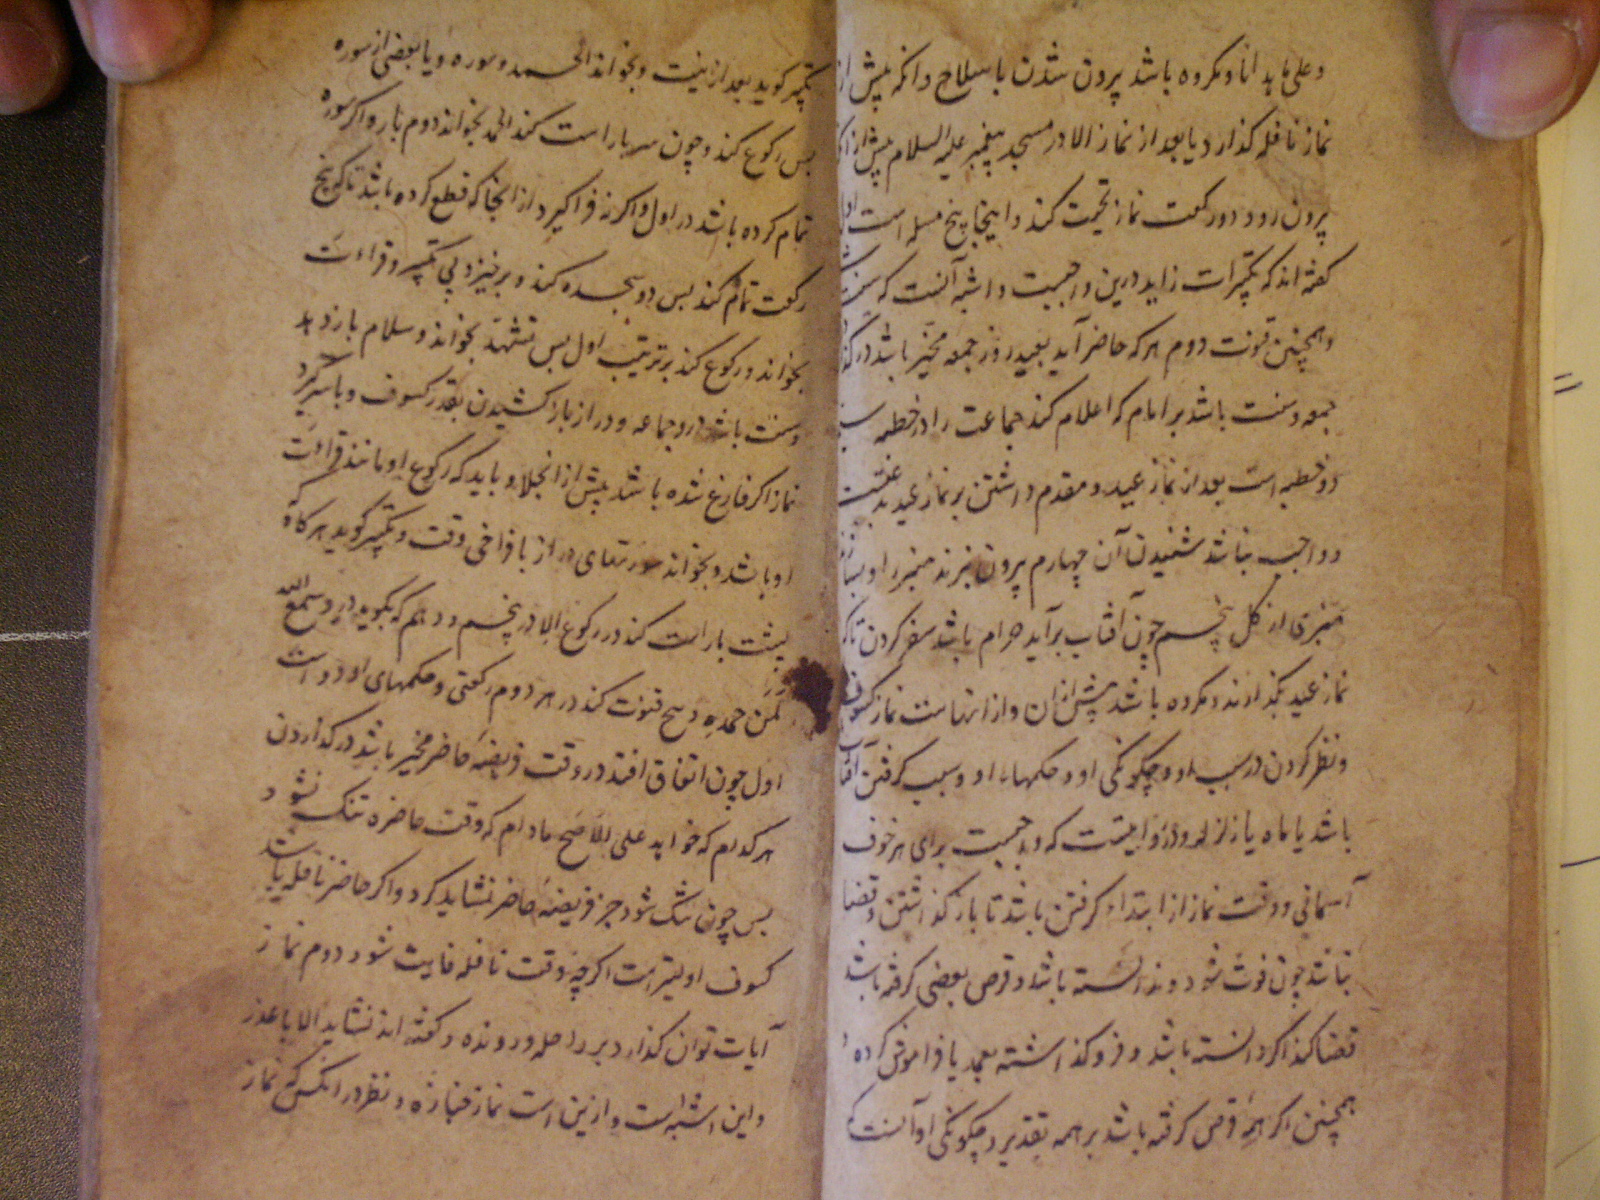 و علی ما هدانا و مکروه باشد بیرون شدن با سلاح و آنکه پیش از
نماز نافله گذارد یا بعد از نماز الا در مسجد پیغمبر علیه السلام پیش از آنکه
بیرون رود دو رکعت نماز تحیت کند و اینجا پنج مسله است اول
گفته اند که تکبیرات زاید درین واجبست و اشبه آنست که سنت
و همچنین قنوت دوم هر که حاضر آید بعید روز جمعه مخیر باشد در
جمعه و سنت باشد بر امام که اعلام کند جماعت را در خطبه
دو خطبه است بعد از نماز عید و مقدم داشتن بر نماز عید بدعتست
و واجب نباشد شنیدن آن چهارم بیرون نبرند منبر را و
منبری از گل پنجم چون آفتاب برآید حرام باشد سفر کردن تا که
نماز عید بگذارند و مکروه باشد پیش از آن و از انهاست نماز کسوف
و نظر کردن در سبب او و چگونکی او و حکمهاء او و سبب گرفتن آفتاب
باشد یا ماه یا زلزله و در روایتست که واجبست برای هر خوف
آسمانی و وقت نماز از ابتداء گرفتن باشد تا باز گذاشتن و قضا
نباشد چون فوت شود و ندانسته باشد و قرص بعضی گرفته باشد
قضا کند اگر دانسته باشد و فرو گذاشته بعمد یا فراموش کرده و
همچنین اگر همه قرص گرفته باشد بر همه تقدیر و چگونکی او آنست که
تکبیر گوید بعد از نیت و بخواند الحمد و سوره و یا بعضی از سوره
پس رکوع کند و چون سر باز است کند الحمد بخواند دوم بار و اگر سوره
تمام کرده باشد در اول و اگر نه فرا گیرد از انجا که قطع کرده باشد تا که پنج
رکعت تمام کند پس دو سجده کند و برخیزد بی تکبیر و قراءت
بخواند و رکوع کند بر ترتیب اول پس تشهد بخواند و سلام باز دهد
و سنت باشد درو جماعه و دراز باز کشیدن بقدر کسوف و باسرگیرد
نماز اگر فارغ شده باشد پیش از انجلا و باید که رکوع او مانند قراءت
او باشد و بخواند سورتهای دراز با فراخی وقت و تکبیر گوید هر گاه که
پشت باز است کند در رکوع الا در پنجم و دهم که بگوید درو سمع الله
لمن حمده و پنج قنوت کند در هر دوم رکعتی و حکمهای او دو است
اول چون اتفاق افتد در وقت فریضه حاضر مخیر باشد در گذاردن
هر کدام که خواهد علی الاصح مادام که وقت حاضره تنک نشود
پس چون تنک شود جز فریضه حاضر نشاید کرد و اگر حاضر نافله باشد
کسوف اولیتر است اگر چه وقت نافله فایت شود دوم نماز
آیات توان گذارد بر راحله و رونده و گفته اند نشاید الا با عذر
و این اشبه است و ازین است نماز جنازه و نظر در انکس که نماز